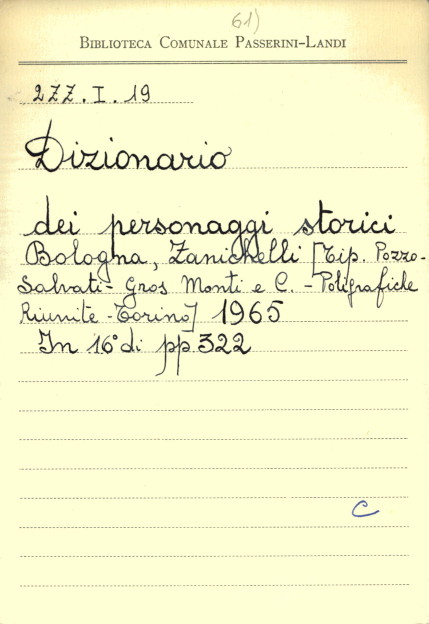 61)
BIBLIOTECA COMUNALE PASSERINI-LANDI
2ZZ.I.19
Dizionario
dei personaggi storici
Bologna, Zanichelli [Tip. Pozzo-
Salvati- Gros Monti e C. - Poligrafiche
Riunite - Torino] 1965
In 16° di pp. 322
C